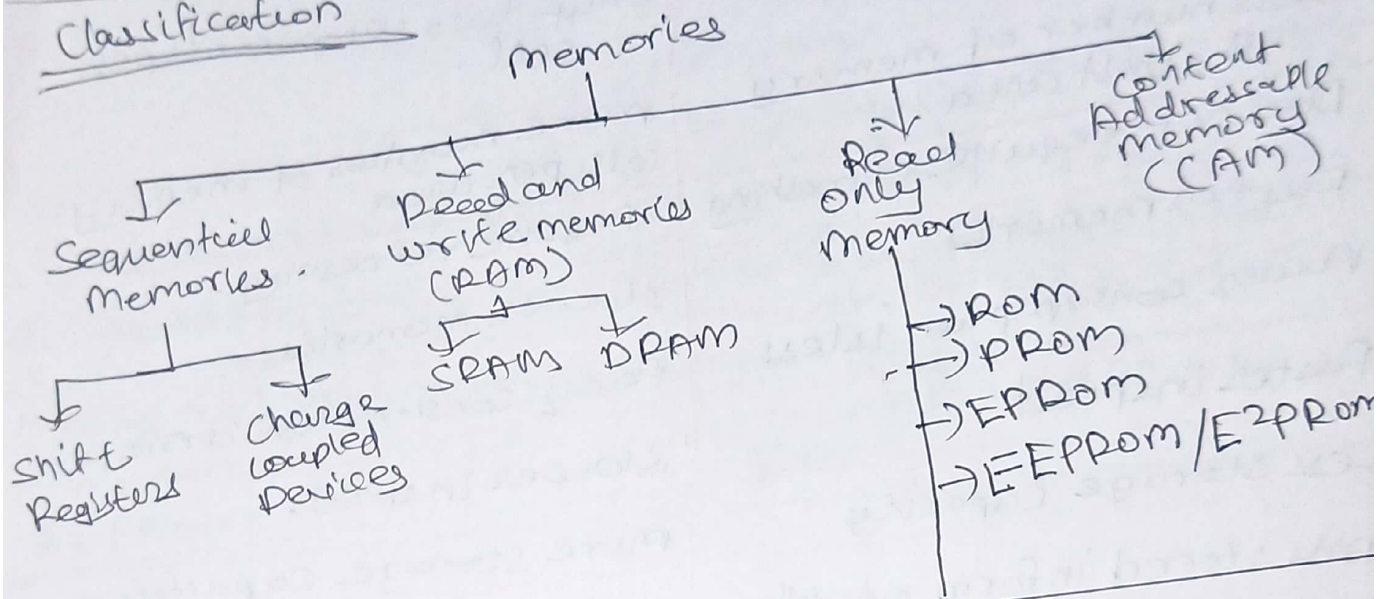 Classification
memories
Sequential
memories.
Read and
write memories
(RAM)
Read
only
memory
Content
Addressable
memory
(CAM)
Shift
Registers
Charge
coupled
Devices
SRAM
DRAM
ROM
PROM
EPROM
EEPROM/E2PROM